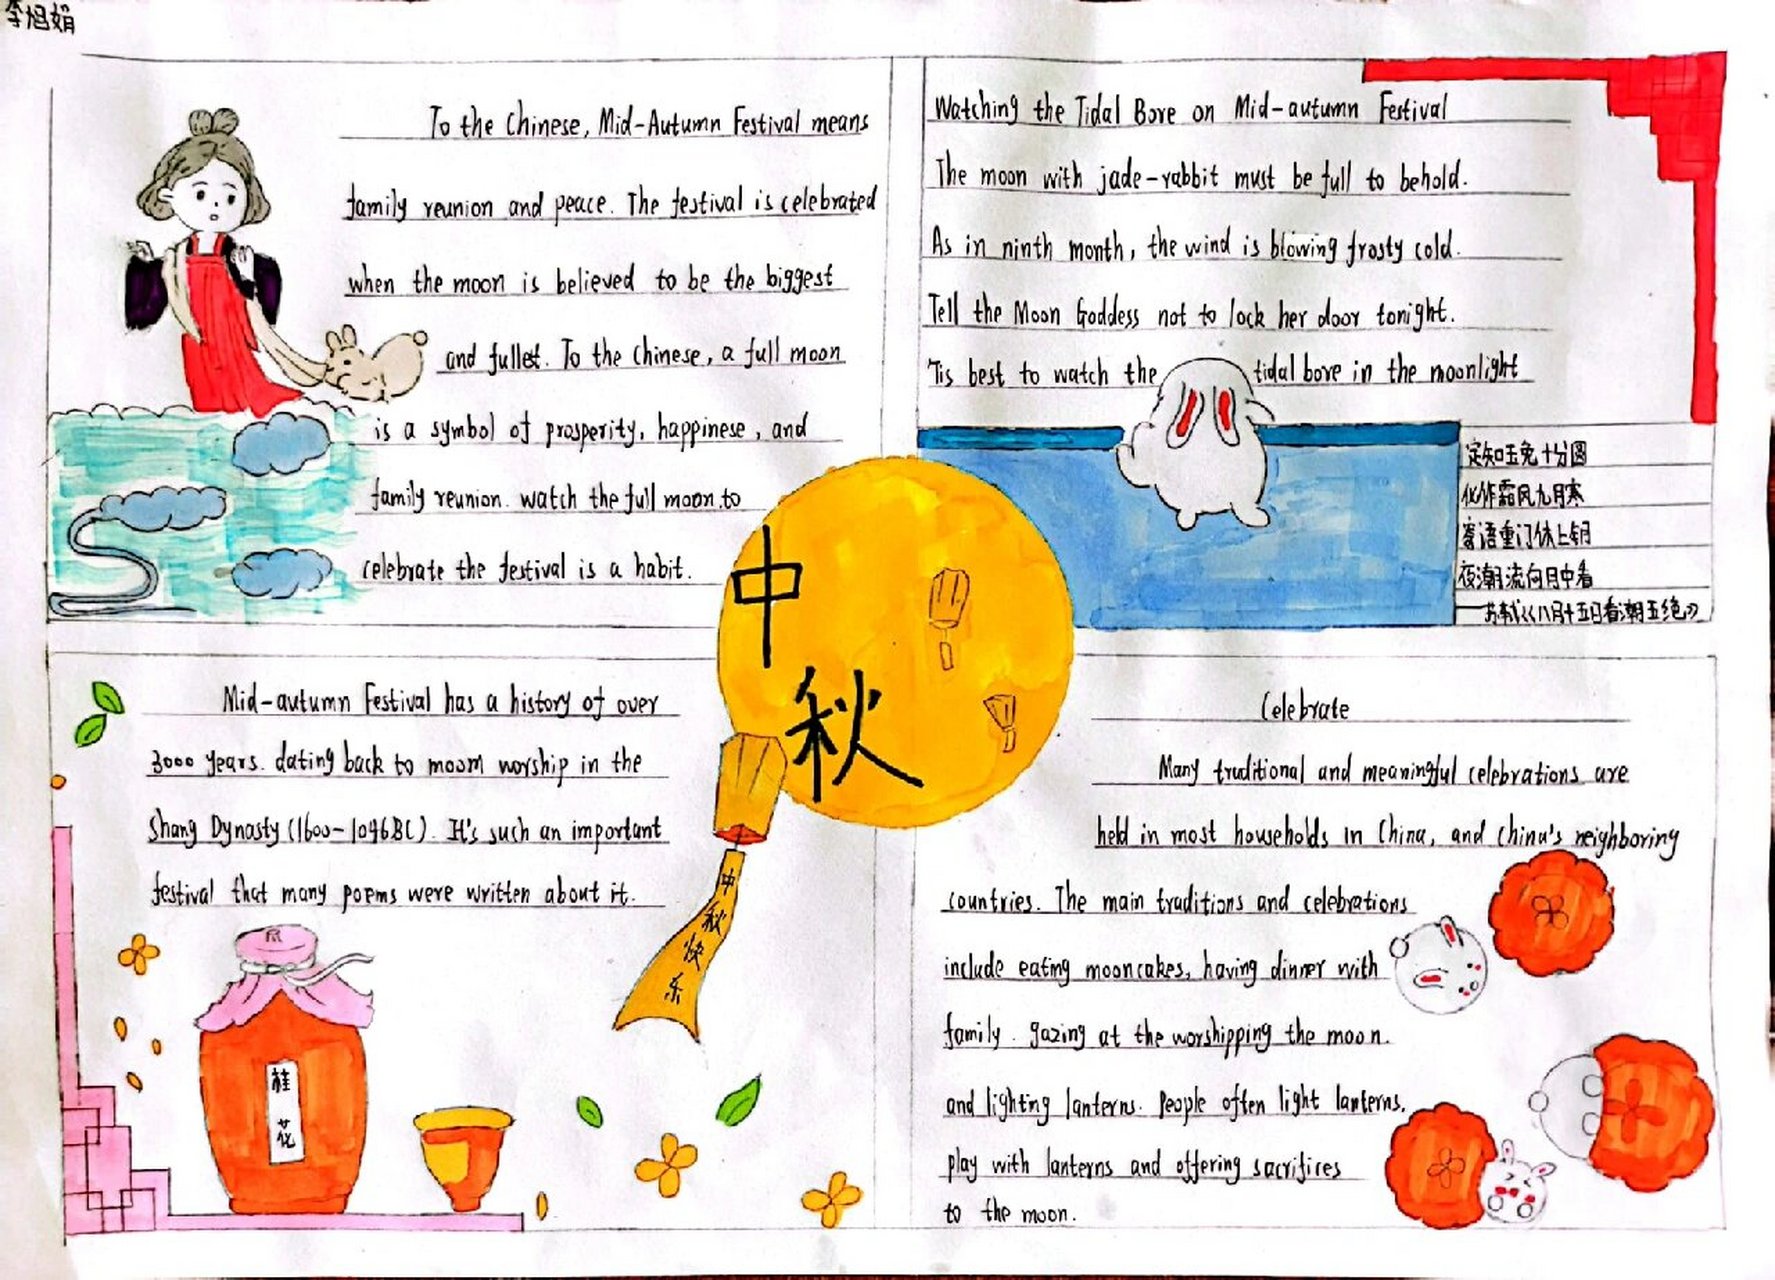 李旭娟
To the Chinese, Mid-Autumn Festival means
family reunion and peace. The festival is celebrated
when the moon is believed to be the biggest
and fullet. To the Chinese, a full moon
is a symbol of prosperity, happinese, and
family reunion. watch the full moon to
celebrate the festival is a habit.
Watching the Tidal Bore on Mid-autumn Festival
The moon with jade-rabbit must be full to behold.
As in ninth month, the wind is blowing frosty cold.
Tell the Moon Goddess not to lock her door tonight.
'Tis best to watch the tidal bore in the moonlight
定知玉兔十分圆
化作霜风九月寒
寄语重门休上钥
夜潮流向月中看
——苏轼《八月十五日看潮五绝》
中
秋
中
秋
快
乐
Mid-autumn Festival has a history of over
3000 years. dating back to moom worship in the
Shang Dynasty (1600-1046BC). It's such an important
festival that many poems were written about it.
桂
花
Celebrate
Many traditional and meaningful celebrations are
held in most households in China, and china's neighboring
countries. The main traditions and celebrations
include eating mooncakes, having dinner with
family. gazing at the worshipping the moon.
and lighting lanterns. People often light lanterns,
play with lanterns and offering sacrifices
to the moon.